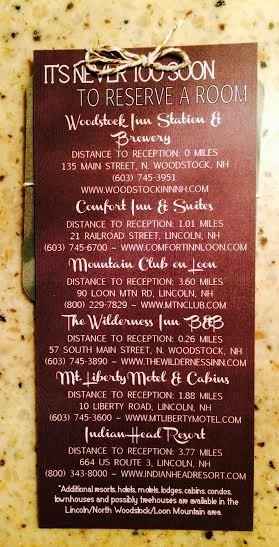 IT'S NEVER TOO SOON
TO RESERVE A ROOM
Woodstock Inn Station &
Brewery
DISTANCE TO RECEPTION: 0 MILES
135 MAIN STREET, N. WOODSTOCK, NH
(603) 745-3951
WWW.WOODSTOCKINNNH.COM
Comfort Inn & Suites
DISTANCE TO RECEPTION: 1.01 MILES
21 RAILROAD STREET, LINCOLN, NH
(603) 745-6700 ~ WWW.COMFORTINNLOON.COM
Mountain Club on Loon
DISTANCE TO RECEPTION: 3.60 MILES
90 LOON MTN RD, LINCOLN, NH
(800) 229-7829 ~ WWW.MTNCLUB.COM
The Wilderness Inn B&B
DISTANCE TO RECEPTION: 0.26 MILES
57 SOUTH MAIN STREET, N. WOODSTOCK, NH
(603) 745-3890 ~ WWW.THEWILDERNESSINN.COM
Mt. Liberty Motel & Cabins
DISTANCE TO RECEPTION: 1.88 MILES
10 LIBERTY ROAD, LINCOLN, NH
(603) 745-3600 ~ WWW.MTLIBERTYMOTEL.COM
Indian Head Resort
DISTANCE TO RECEPTION: 3.77 MILES
664 US ROUTE 3, LINCOLN, NH
(800) 343-8000 ~ WWW.INDIANHEADRESORT.COM
*Additional resorts, hotels, motels, lodges, cabins, condos,
townhouses and possibly treehouses are available in the
Lincoln/North Woodstock/Loon Mountain area.